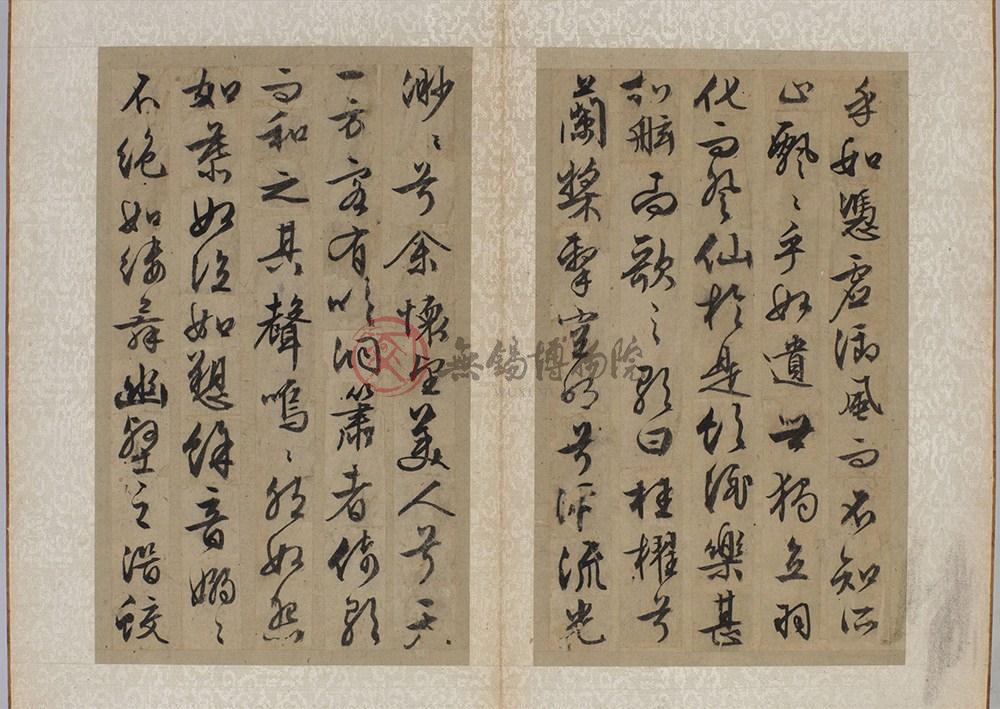 乎如憑虛御風而不知所
止飄〻乎如遺世獨立羽
化而登仙於是飲酒樂甚
扣舷而歌之歌曰桂櫂兮
蘭槳擊空明兮泝流光
渺〻兮余懷望美人兮天
一方客有吹洞簫者倚歌
而和之其聲嗚〻然如怨
如慕如泣如愬餘音嫋〻
不絕如縷舞幽壑之潛蛟
無錫博物院